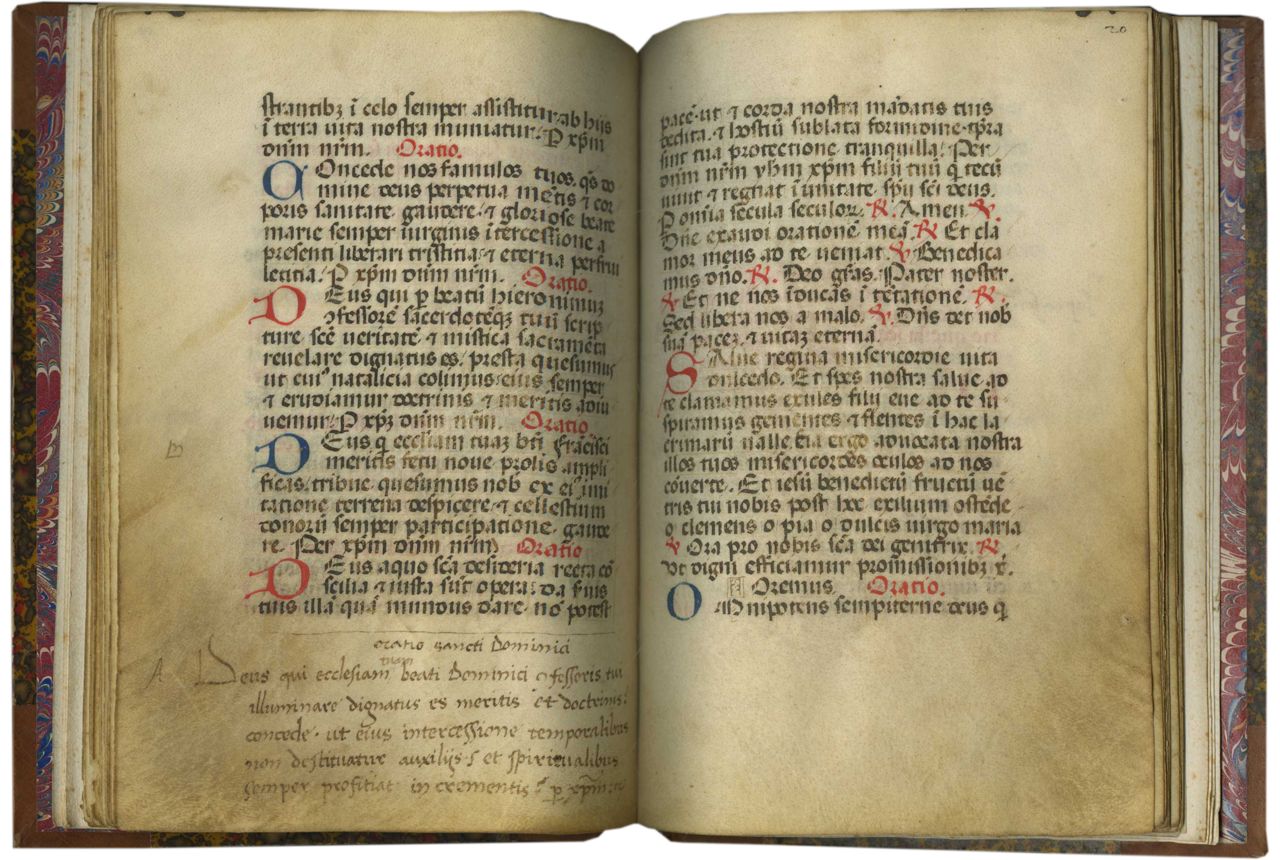 strantibꝫ ī celo semper assistitur ab hijs
ī terra uita nostra muniatur. P xp̄m
dūm nr̄m. Oratio.
COncede nos famulos tuos. qs̄ do
mine deus perpetua mētis ⁊ cor
poris sanitate gaudere. ⁊ gloriose beate
marie semper uirginis ītercessione a
presenti liberari tristitia. ⁊ eterna perfrui
letitia. P xp̄m dūm nr̄m. Oratio.
DEus qui p beatū hieronimuꝫ
ɔfessorē sacerdotēqꝫ tuū scrip
ture scē ueritatē ⁊ mistica sacramēta
reuelare dignatus es. presta quesumus
ut cuiꝰ natalicia colimus. eius semper
⁊ erudiamur doctrinis ⁊ meritis adiu
uemur. P xp̄ꝫ dūm nr̄m. Oratio
DEus q̄ eccl̄iam tuaꝫ btī frācisci
meritis fetu noue prolis ampli
ficas. tribue quesumus nob ex eiꝰ imi
tatione terrena despicere. ⁊ cellestium
donorū semper participatione gaude
re. Per xp̄m dūm nr̄m. Oratio
DEus a quo scā desideria recta cō
scilia ⁊ iusta sūt opera. da suis
tuis illā quā mundus dare nō potest
m
oratio sancti Dominici
A Deus qui ecclesiam tuam beati Dominici ɔfessoris tui
illuminare dignatus es meritis et doctrinis:
concede. ut eius intercessione temporalibus
non destituatur auxilijs. et spiritualibus
semper profitiat incrementis. p xp̄m
20
pacē. ut ⁊ corda nostra mādatis tuis
dedita. ⁊ hostiū sublata formidine. tp̄ra
sint tua protectione tranquilla. Per
dūm nr̄m yhm xp̄m filiū tuū q̄ tecū
uiuit ⁊ regnat ī unitate spū scī deus.
P omīa secula seculoꝝ. R. Amen. V.
Dn̄e exaudi orationē meā. R Et cla
mor meus ad te ueniat. V Benedica
mus dn̄o. R. Deo grās. Pater noster.
V Et ne nos īducas ī tētationē. R.
Sed libera nos a malo. V. Dn̄s det nob
suā pacēꝫ ⁊ uitaꝫ eternā.
SAlue regina misericordie uita
dulcedo. Et spes nostra salue ad
te clamamus exules filij eue ad te su
spiramus gementes ⁊ flentes ī hac la
crimarū ualle. Eia ergo aduocata nostra
illos tuos misericordes oculos ad nos
cōuerte. Et iesū benedictū fructū uē
tris tui nobis post hoc exilium ostēde
o clemens o pia o dulcis uirgo maria
V Ora pro nobis scā dei genitrix. R.
Vt digni efficiamur promissionibꝫ x̄.
Oremus Oratio.
OMnipotens sempiterne deus q̄